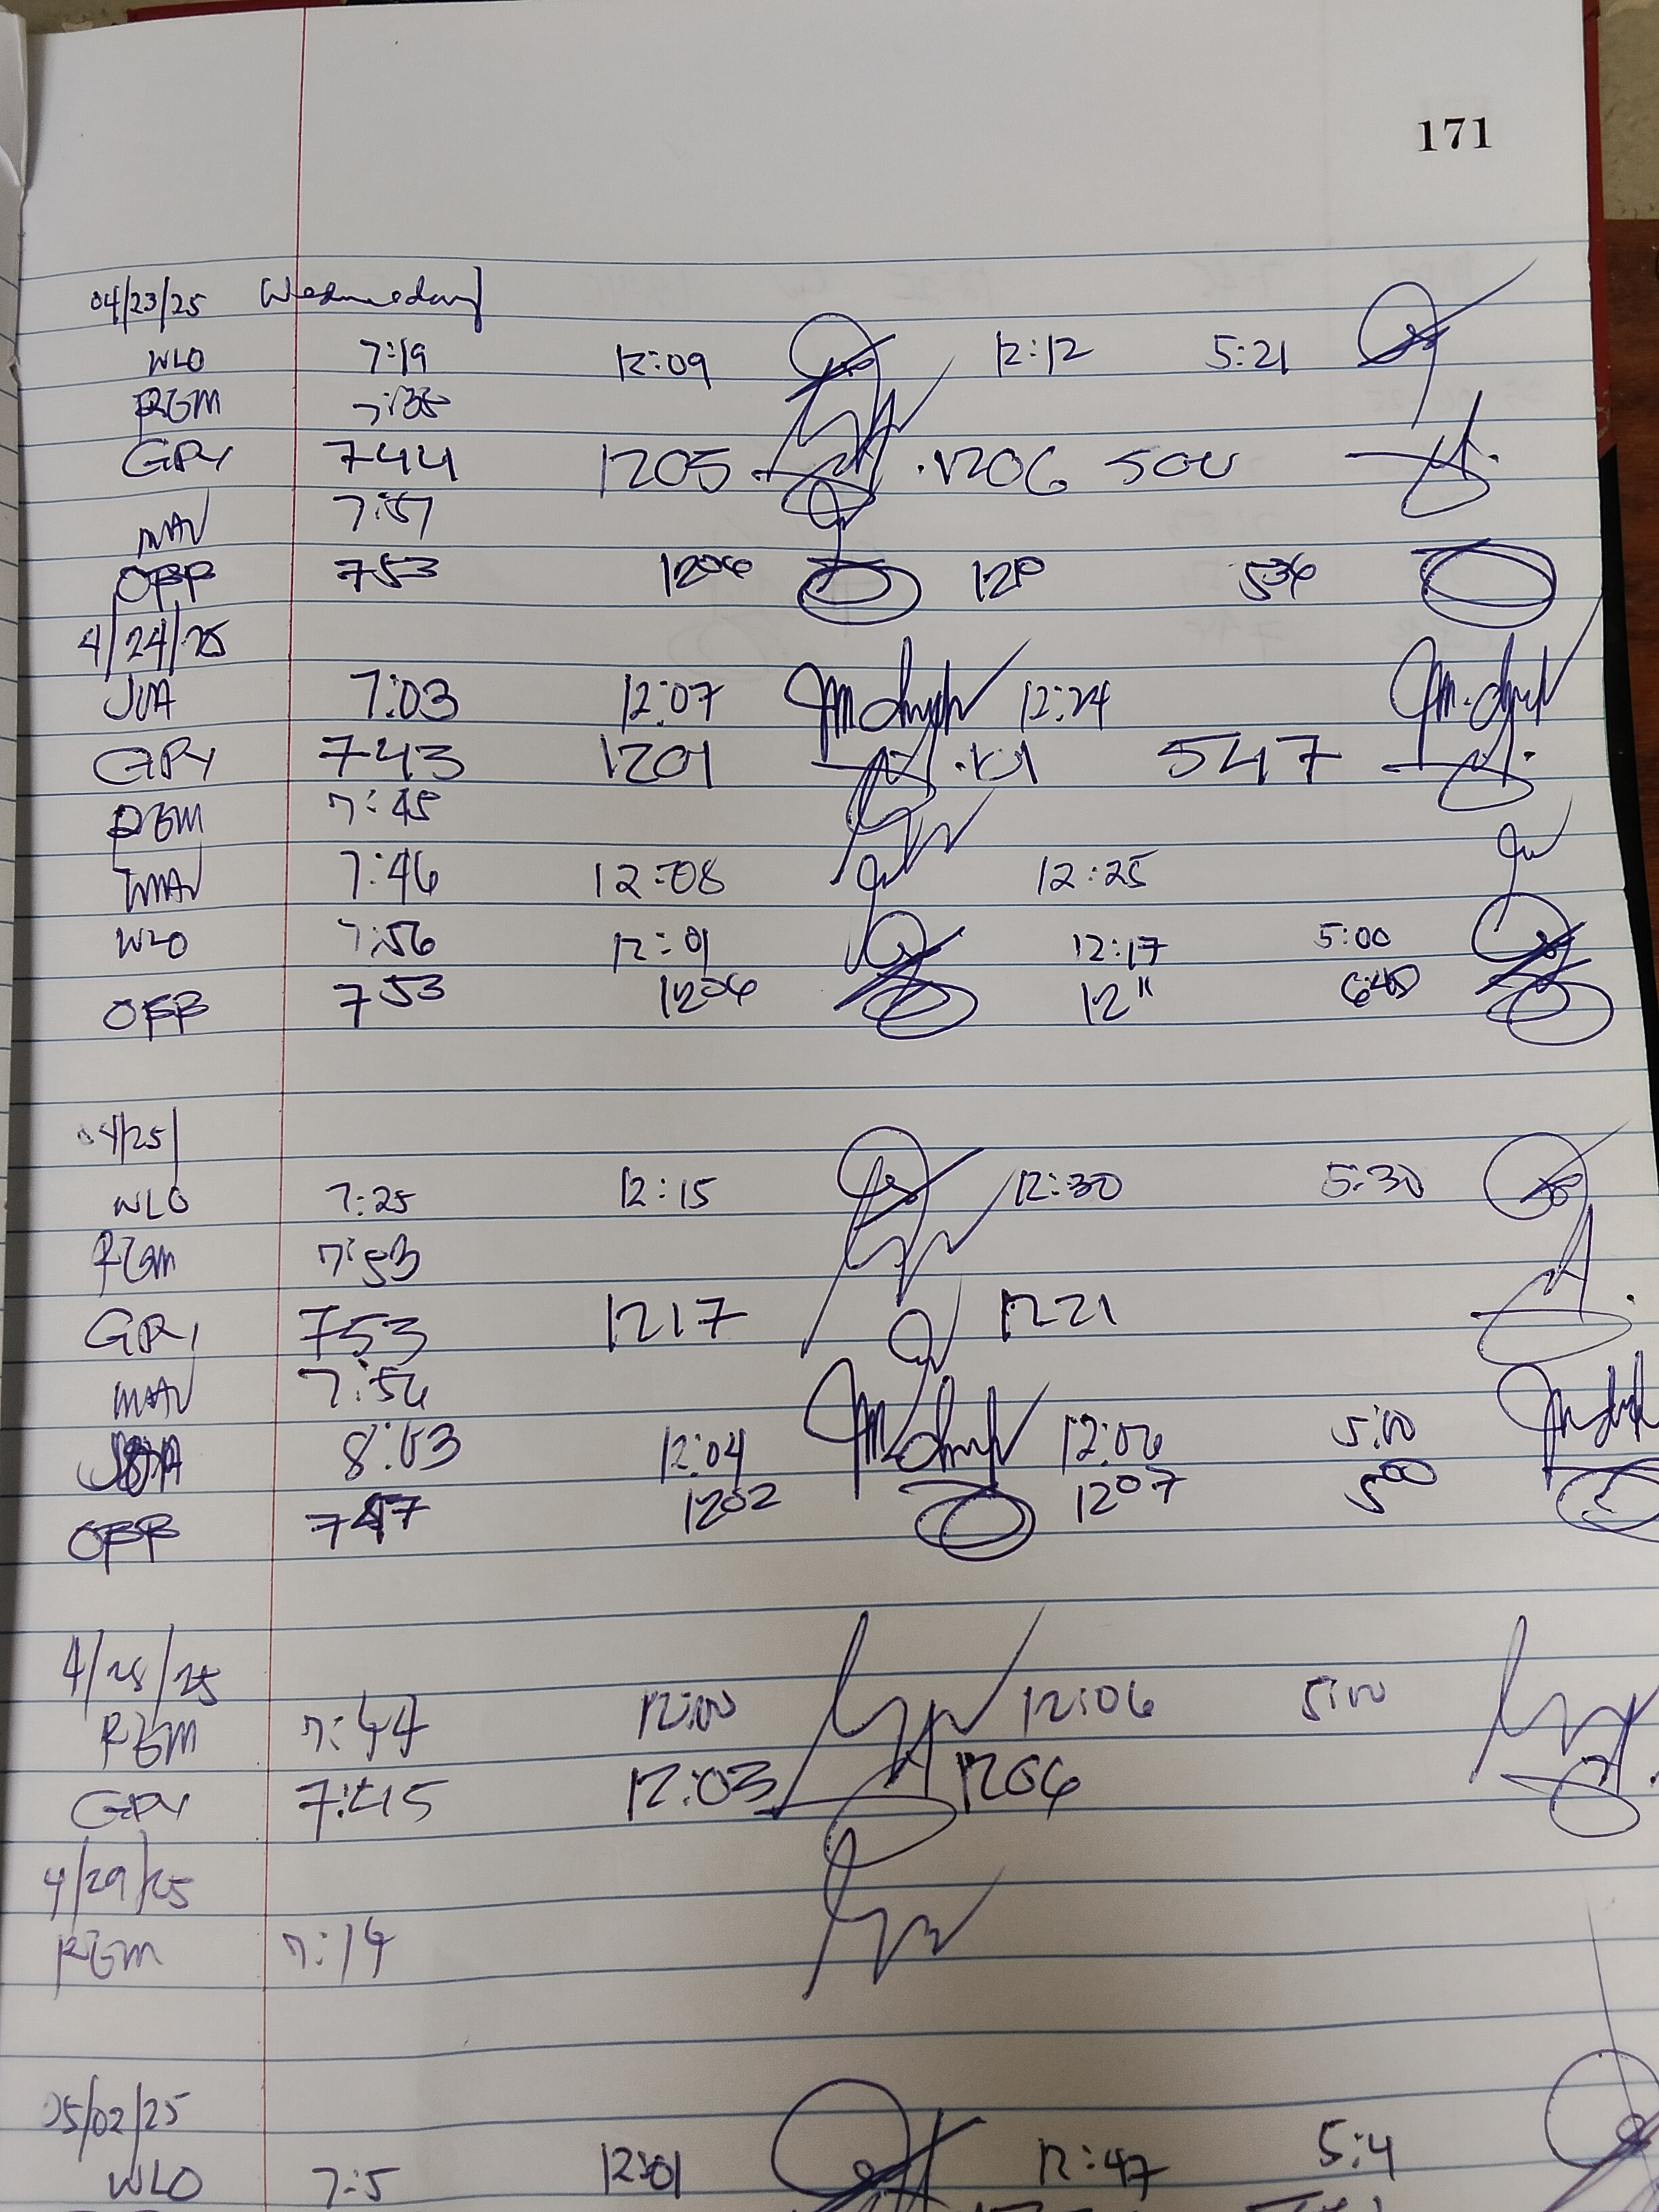 171
04/23/25 Wednesday
WLO 7:19 12:09 12:12 5:21
RGM 7:38
GPY 744 1205 1206 500
MAV 7:57
OFP 753 1206 536
4/24/25
JUA 7:03 12:07 12:24
GPY 743 1201 547
RGM 7:45
MAV 7:46 12:08 12:25
WLO 7:56 12:01 12:17 5:00
OFP 753 1206 12"
04/25/
WLO 7:25 12:15 12:30 5:30
RGM 7:53
GPY 753 1217 1221
MAV 7:56
8:03 12:04 12:06 5:00
OFP 747 1202 1207 500
4/28/25
RGM 7:44 12:00 12:06 5:00
GPY 7:45 12:03 1206
4/29/25
RGM 7:14
05/02/25
WLO 7:5 12:01 12:47 5:4